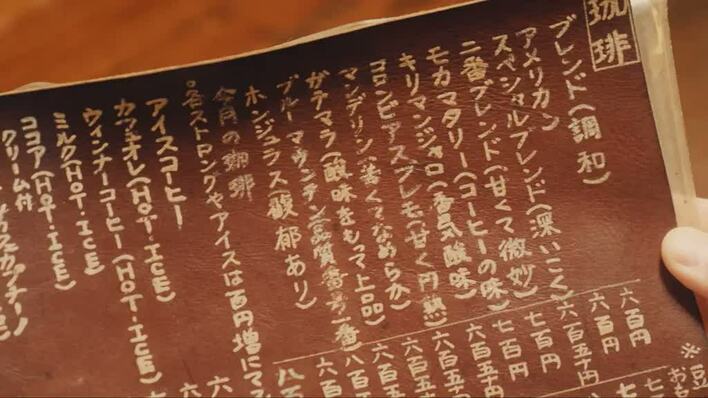 珈琲
ブレンド(調和) 六百円
アメリカン 六百円
スペシャルブレンド(深いこく) 六百五十円
二番ブレンド(甘くて微妙) 七百円
モカマタリー(コーヒーの味) 七百円
キリマンジャロ(香気酸味) 六百五十円
コロンビアスプレモ(甘く円熟) 六百五十
マンデリン(苦くてなめらか) 六百五
ガテマラ(酸味をもつ上品) 六百
ブルーマウンテン(品質香り一番)
ホンジュラス(馥郁あり) 六百
今月の珈琲 八百
○各ストロングやアイスは百円増にて
アイスコーヒー
カフェオレ(HOT・ICE)
ウィンナーコーヒー(HOT・ICE)
ミルク(HOT・ICE)
ココア(HOT・ICE)
クリーム付